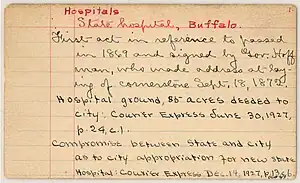 Hospitals
State hospital, Buffalo.
First act in reference to passed
in 1869 and signed by Gov. Hoff
man, who made address at lay
ing of cornerstone Sept. 18, 1872.
Hospital ground, 85 acres deeded to
city: Courier Express June 30, 1927,
p. 24, c. 1.
Compromise between State and City
as to city appropriation for new state
Hospital: Courier Express Dec. 19, 1927, p.